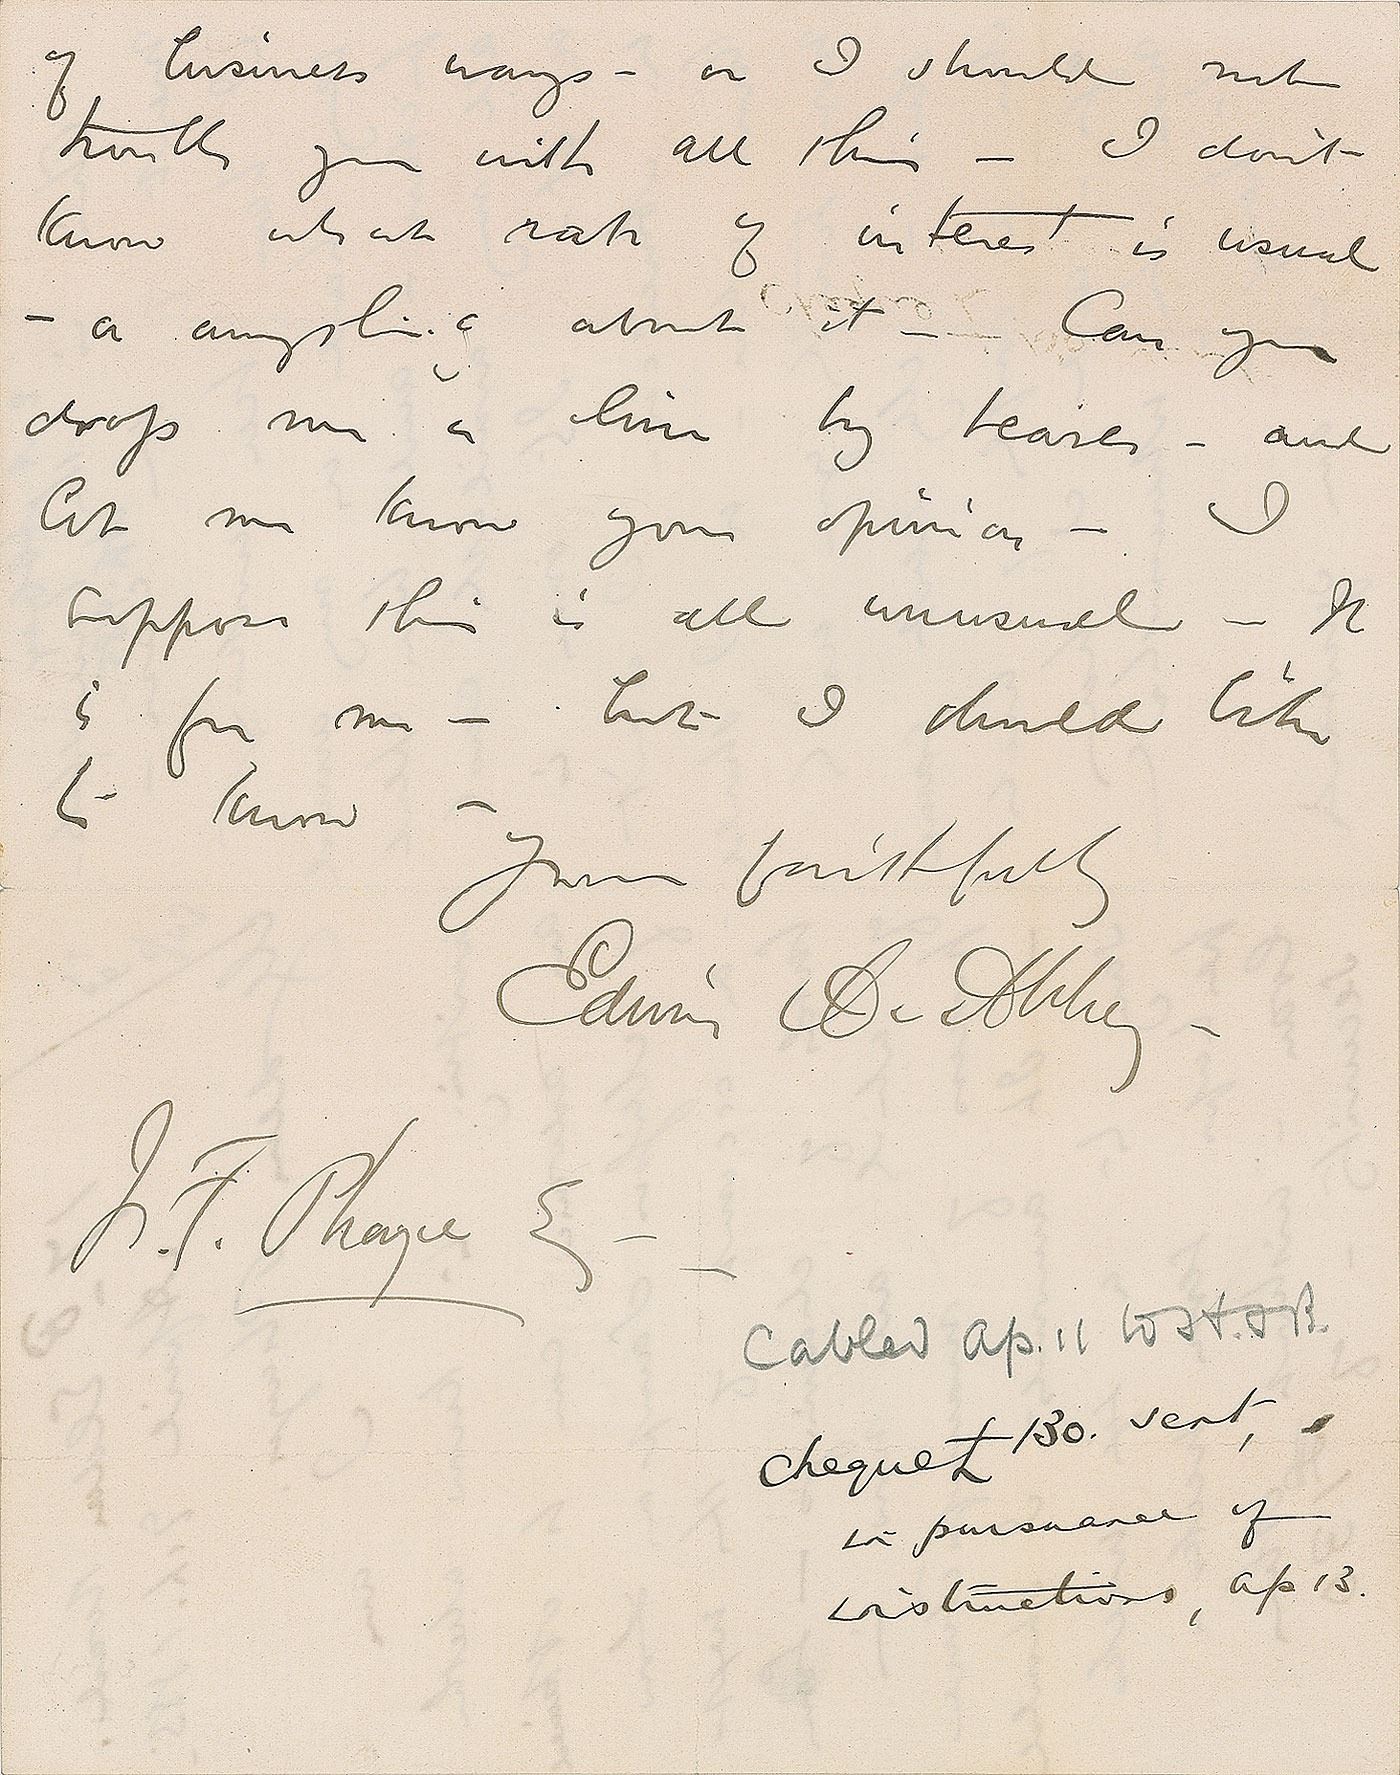 of business ways – or I should not
trouble you with all this – I don't
know what rate of interest is usual
– or anything about it – Can you
drop me a line by bearer – and
let me know your opinion – I
suppose this is all unusual – It
is for me – but I should like
to know –
Yours faithfully
Edwin A. Abbey –
J. F. Phayre Esq –
Cabled Ap. 11 to H.
cheque £130. sent,
in pursuance of
instructions, Ap 13.